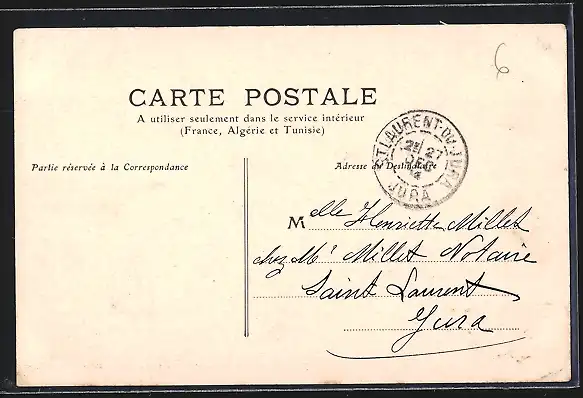 6
CARTE POSTALE
A utiliser seulement dans le service intérieur
(France, Algérie et Tunisie)
Partie réservée à la Correspondance
Adresse du Destinataire
ST LAURENT-DU-JURA
27
DEC
JURA
Melle Henriette Millet
chez Mr Millet Notaire
Saint Laurent
Jura